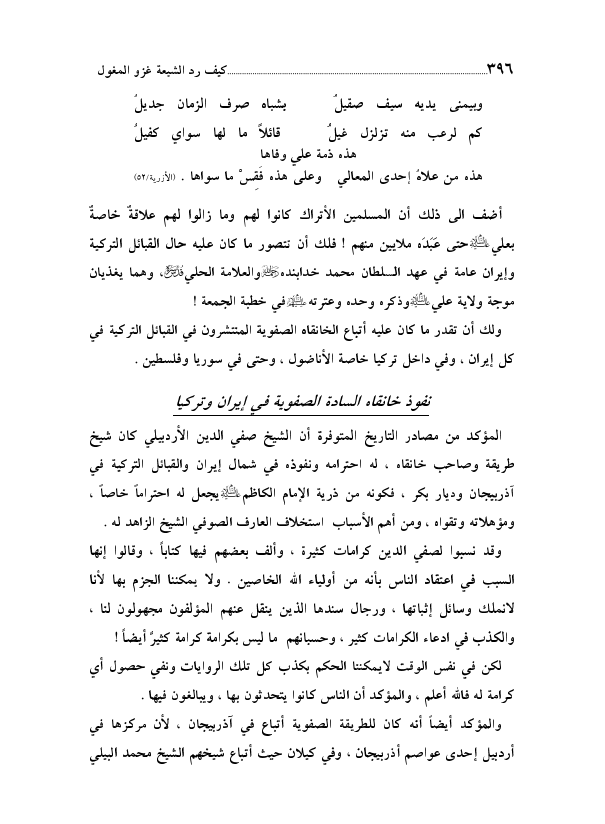 ٣٩٦ ........ كيف رد الشيعة غزو المغول
وبيمنى يديه سيف صقيلٌ يشباه صرف الزمان جديلٌ
كم لرعب منه تزلزل غيلٌ قائلاً ما لها سواي كفيلٌ
هذه ذمة علي وفاها
هذه من علاهُ إحدى المعالي وعلى هذه فَقِسْ ما سواها . (الأزرية/٥٢)
أضف الى ذلك أن المسلمين الأتراك كانوا لهم وما زالوا لهم علاقةٌ خاصةٌ
بعلي حتى عَبَدَه ملايين منهم ! فلك أن تتصور ما كان عليه حال القبائل التركية
وإيران عامة في عهد السلطان محمد خدابنده والعلامة الحلي ، وهما يغذيان
موجة ولاية علي وذكره وحده وعترته في خطبة الجمعة !
ولك أن تقدر ما كان عليه أتباع الخانقاه الصفوية المنتشرون في القبائل التركية في
كل إيران ، وفي داخل تركيا خاصة الأناضول ، وحتى في سوريا وفلسطين .
نفوذ خانقاه السادة الصفوية في إيران وتركيا
المؤكد من مصادر التاريخ المتوفرة أن الشيخ صفي الدين الأردبيلي كان شيخ
طريقة وصاحب خانقاه ، له احترامه ونفوذه في شمال إيران والقبائل التركية في
آذربيجان وديار بكر ، فكونه من ذرية الإمام الكاظم يجعل له احتراماً خاصاً ،
ومؤهلاته وتقواه ، ومن أهم الأسباب استخلاف العارف الصوفي الشيخ الزاهد له .
وقد نسبوا لصفي الدين كرامات كثيرة ، وألف بعضهم فيها كتاباً ، وقالوا إنها
السبب في اعتقاد الناس بأنه من أولياء الله الخاصين . ولا يمكننا الجزم بها لأنا
لانملك وسائل إثباتها ، ورجال سندها الذين ينقل عنهم المؤلفون مجهولون لنا ،
والكذب في ادعاء الكرامات كثير ، وحسبانهم ما ليس بكرامة كرامة كثيرٌ أيضاً !
لكن في نفس الوقت لايمكننا الحكم بكذب كل تلك الروايات ونفي حصول أي
كرامة له فالله أعلم ، والمؤكد أن الناس كانوا يتحدثون بها ، ويبالغون فيها .
والمؤكد أيضاً أنه كان للطريقة الصفوية أتباع في آذربيجان ، لأن مركزها في
أردبيل إحدى عواصم أذربيجان ، وفي كيلان حيث أتباع شيخهم الشيخ محمد البيلي